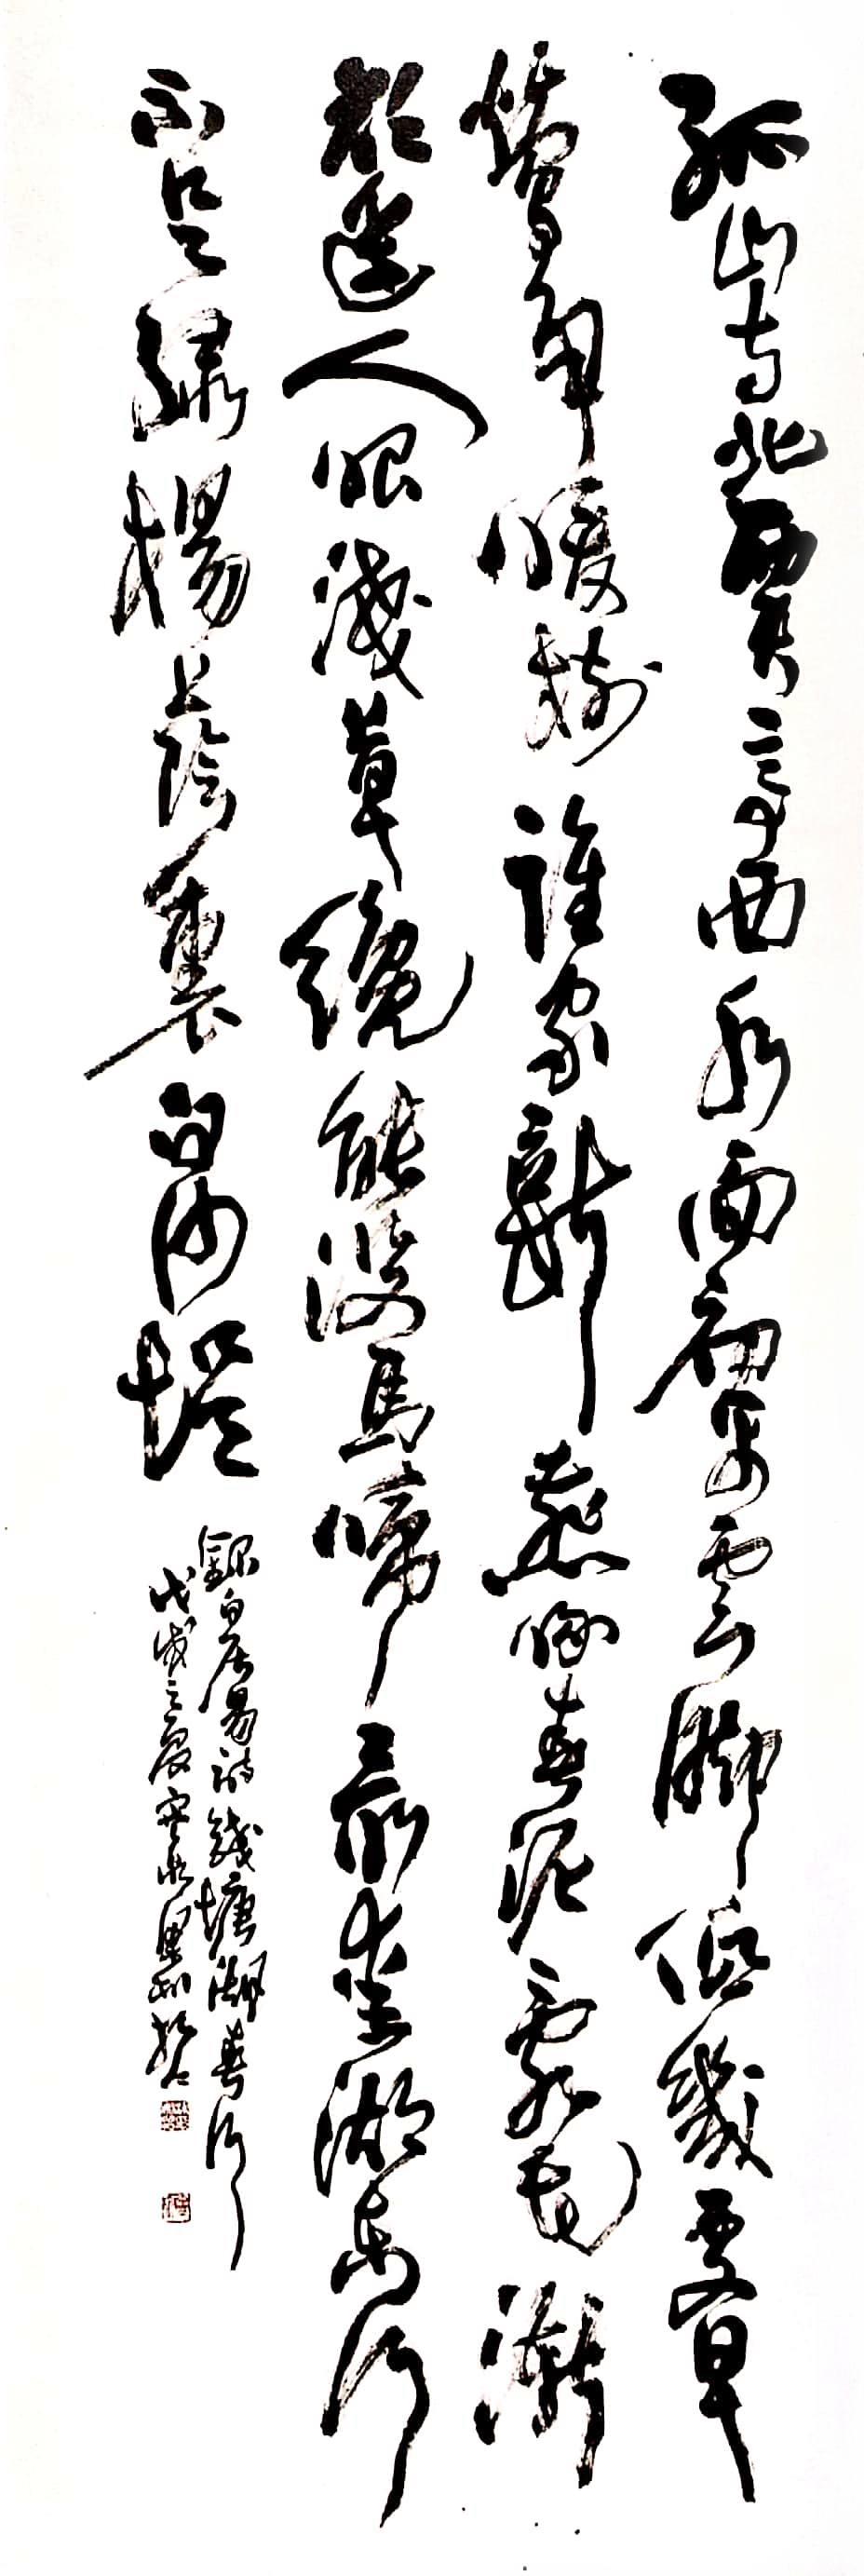 孤山寺北賈亭西水面初平雲脚低幾處早
鶯爭暖樹誰家新燕啄春泥亂花漸
欲迷人眼淺草纔能沒馬蹄最愛湖東行
不足綠楊蔭裏白沙堤
錄白居易詩錢塘湖春行
戊戌之夏